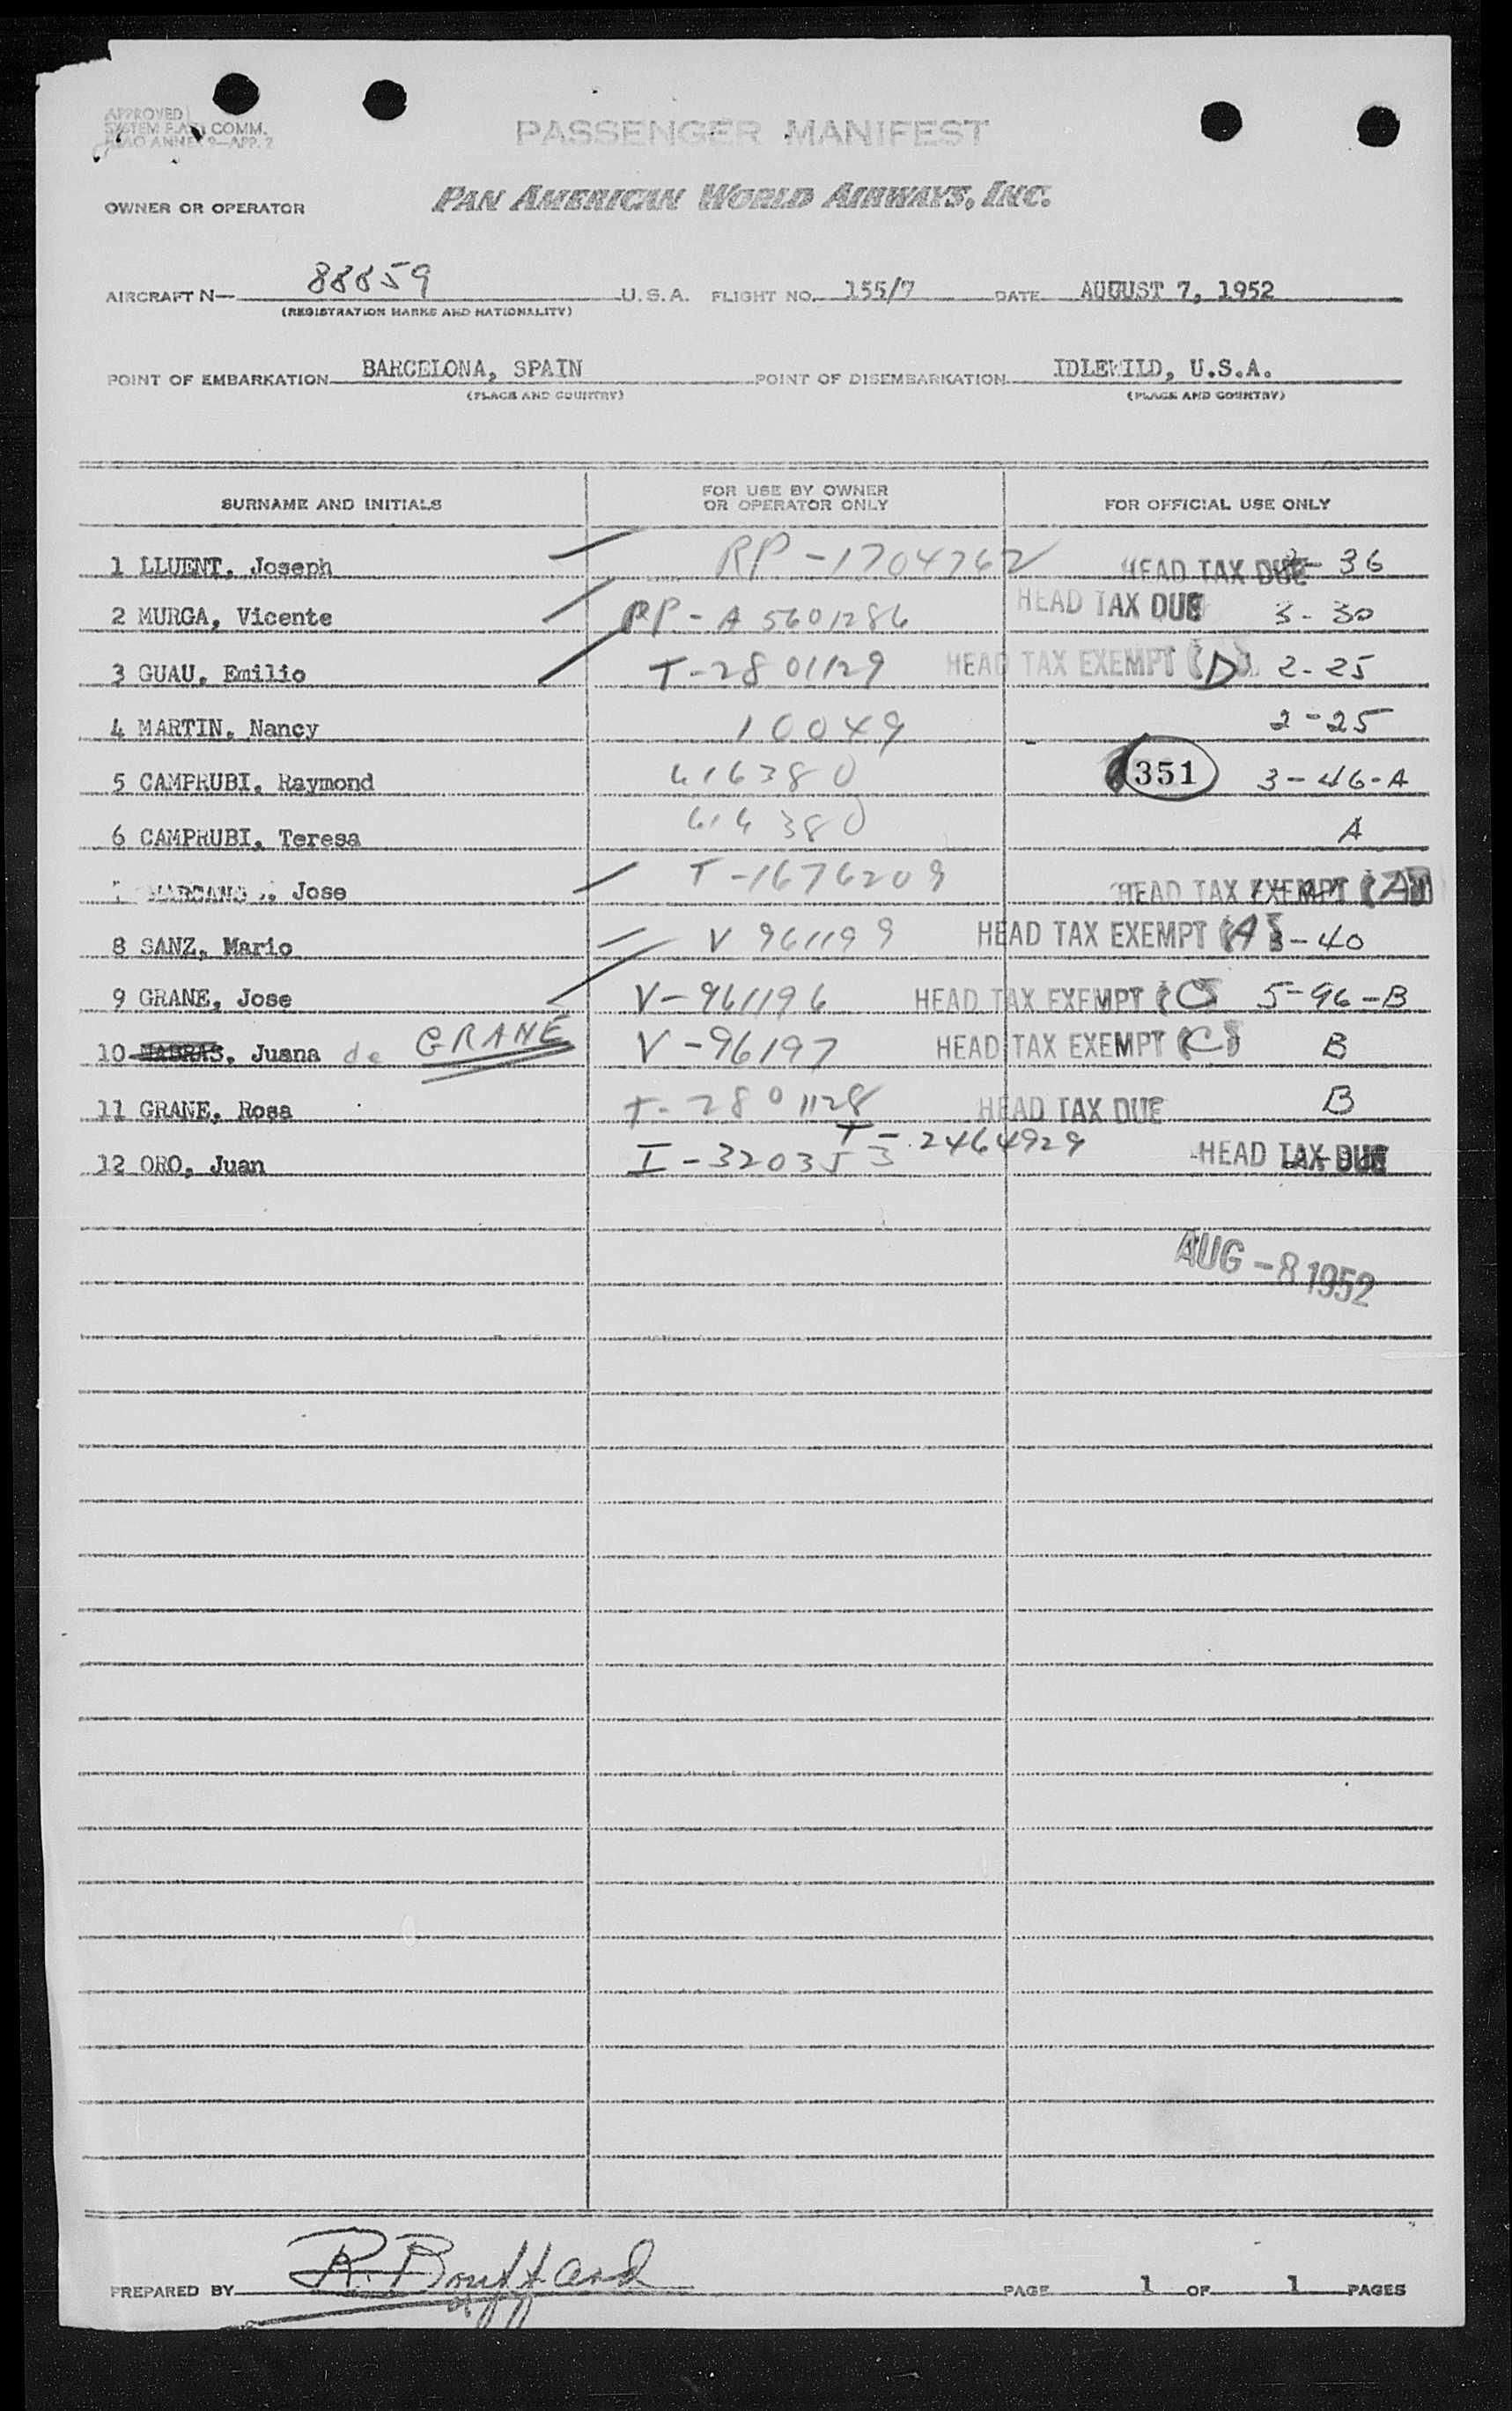 APPROVED
SYSTEM COMM.
ICAO ANNEX 9—APP. 2
PASSENGER MANIFEST
OWNER OR OPERATOR PAN AMERICAN WORLD AIRWAYS, INC.
AIRCRAFT N— 88859 U.S.A. FLIGHT NO. 155/7 DATE AUGUST 7, 1952
(REGISTRATION MARKS AND NATIONALITY)
POINT OF EMBARKATION BARCELONA, SPAIN POINT OF DISEMBARKATION IDLEWILD, U.S.A.
(PLACE AND COUNTRY) (PLACE AND COUNTRY)
SURNAME AND INITIALS FOR USE BY OWNER OR OPERATOR ONLY FOR OFFICIAL USE ONLY
1 LLUENT, Joseph RP-1704762 HEAD TAX DUE 36
2 MURGA, Vicente RP-A5601286 HEAD TAX DUE 3-30
3 GUAU, Emilio T-2801129 HEAD TAX EXEMPT (D) 2-25
4 MARTIN, Nancy 10049 2-25
5 CAMPRUBI, Raymond 616380 351 3-46-A
6 CAMPRUBI, Teresa 616380 A
Jose T-1676209 HEAD TAX EXEMPT (A)
8 SANZ, Mario V 961199 HEAD TAX EXEMPT (A) 3-40
9 GRANE, Jose V-961196 HEAD TAX EXEMPT (C) 5-96-B
10 Juana de GRANE V-96197 HEAD TAX EXEMPT (C) B
11 GRANE, Rosa T-2801128 HEAD TAX DUE B
12 ORO, Juan I-320353 T-2464929 HEAD TAX DUE
AUG -8 1952
PREPARED BY R. Bouffard PAGE 1 OF 1 PAGES